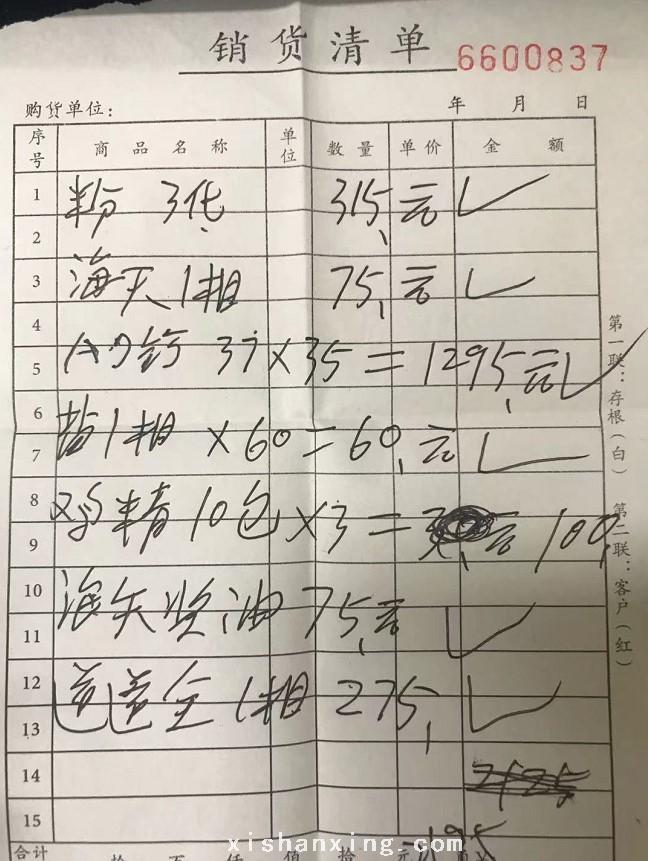 销货清单 6600837
购货单位: 年 月 日
序号 商品名称 单位 数量 单价 金额
1 粉 3代 315,元
2
3 海天1相 75,元
4
5 37×35=1295,元
6
7 盐1相 ×60=60,元
8
9 鸡精10包×3=3 元 100,
10
11 海天浆油 75,元
12
13 道道全1相 275,
14
15
合计 拾 百 仟 佰 拾 元
第一联:存根(白)
第二联:客户(红)
xishanxing.com